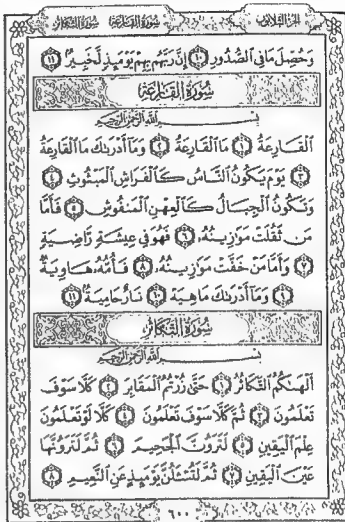 سُورَةُ القَارِعَةِ سُورَةُ التَّكَاثُرِ
الجُزْءُ الثَّلَاثُونَ
وَحُصِّلَ مَا فِى ٱلصُّدُورِ ١٠ إِنَّ رَبَّهُم بِهِمْ يَوْمَئِذٍ لَّخَبِيرٌ ١١
سُورَةُ القَارِعَةِ
بِسْمِ ٱللَّهِ ٱلرَّحْمَٰنِ ٱلرَّحِيمِ
ٱلْقَارِعَةُ ١ مَا ٱلْقَارِعَةُ ٢ وَمَآ أَدْرَىٰكَ مَا ٱلْقَارِعَةُ
٣ يَوْمَ يَكُونُ ٱلنَّاسُ كَٱلْفَرَاشِ ٱلْمَبْثُوثِ ٤
وَتَكُونُ ٱلْجِبَالُ كَٱلْعِهْنِ ٱلْمَنفُوشِ ٥ فَأَمَّا
مَن ثَقُلَتْ مَوَٰزِينُهُۥ ٦ فَهُوَ فِى عِيشَةٍ رَّاضِيَةٍ
٧ وَأَمَّا مَنْ خَفَّتْ مَوَٰزِينُهُۥ ٨ فَأُمُّهُۥ هَاوِيَةٌ
٩ وَمَآ أَدْرَىٰكَ مَا هِيَهْ ١٠ نَارٌ حَامِيَةٌۢ ١١
سُورَةُ التَّكَاثُرِ
بِسْمِ ٱللَّهِ ٱلرَّحْمَٰنِ ٱلرَّحِيمِ
أَلْهَىٰكُمُ ٱلتَّكَاثُرُ ١ حَتَّىٰ زُرْتُمُ ٱلْمَقَابِرَ ٢ كَلَّا سَوْفَ
تَعْلَمُونَ ٣ ثُمَّ كَلَّا سَوْفَ تَعْلَمُونَ ٤ كَلَّا لَوْ تَعْلَمُونَ
عِلْمَ ٱلْيَقِينِ ٥ لَتَرَوُنَّ ٱلْجَحِيمَ ٦ ثُمَّ لَتَرَوُنَّهَا
عَيْنَ ٱلْيَقِينِ ٧ ثُمَّ لَتُسْـَٔلُنَّ يَوْمَئِذٍ عَنِ ٱلنَّعِيمِ ٨
٦٠٠